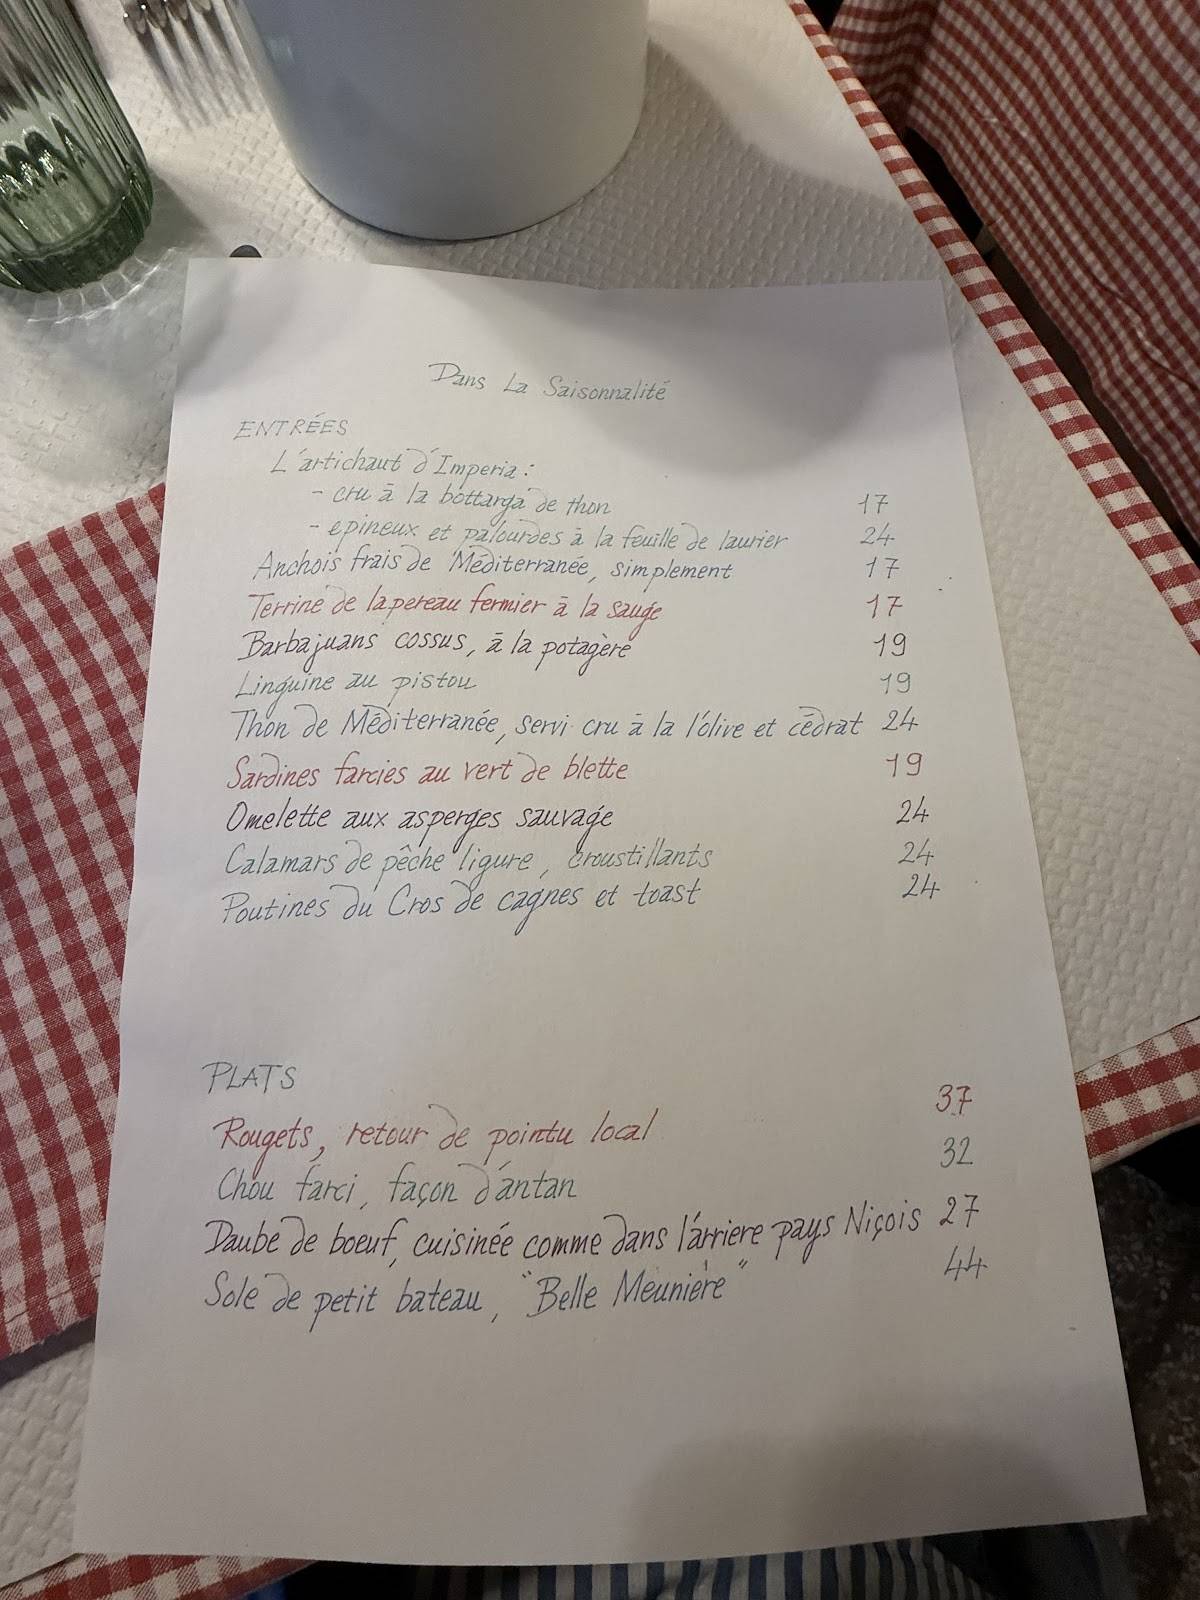 Dans La Saisonnalité
ENTRÉES
L'artichaut d'Imperia :
- cru à la bottarga de thon 17
- epineux et palourdes à la feuille de laurier 24
Anchois frais de Méditerranée, simplement 17
Terrine de lapereau fermier à la sauge 17
Barbajuans cossus, à la potagère 19
Linguine au pistou 19
Thon de Méditerranée, servi cru à la l'olive et cédrat 24
Sardines farcies au vert de blette 19
Omelette aux asperges sauvage 24
Calamars de pêche ligure, croustillants 24
Poutines du Cros de cagnes et toast 24
PLATS
Rougets, retour de pointu local 37
Chou farci, façon d'antan 32
Daube de boeuf, cuisinée comme dans l'árriere pays Niçois 27
Sole de petit bateau, "Belle Meunière" 44